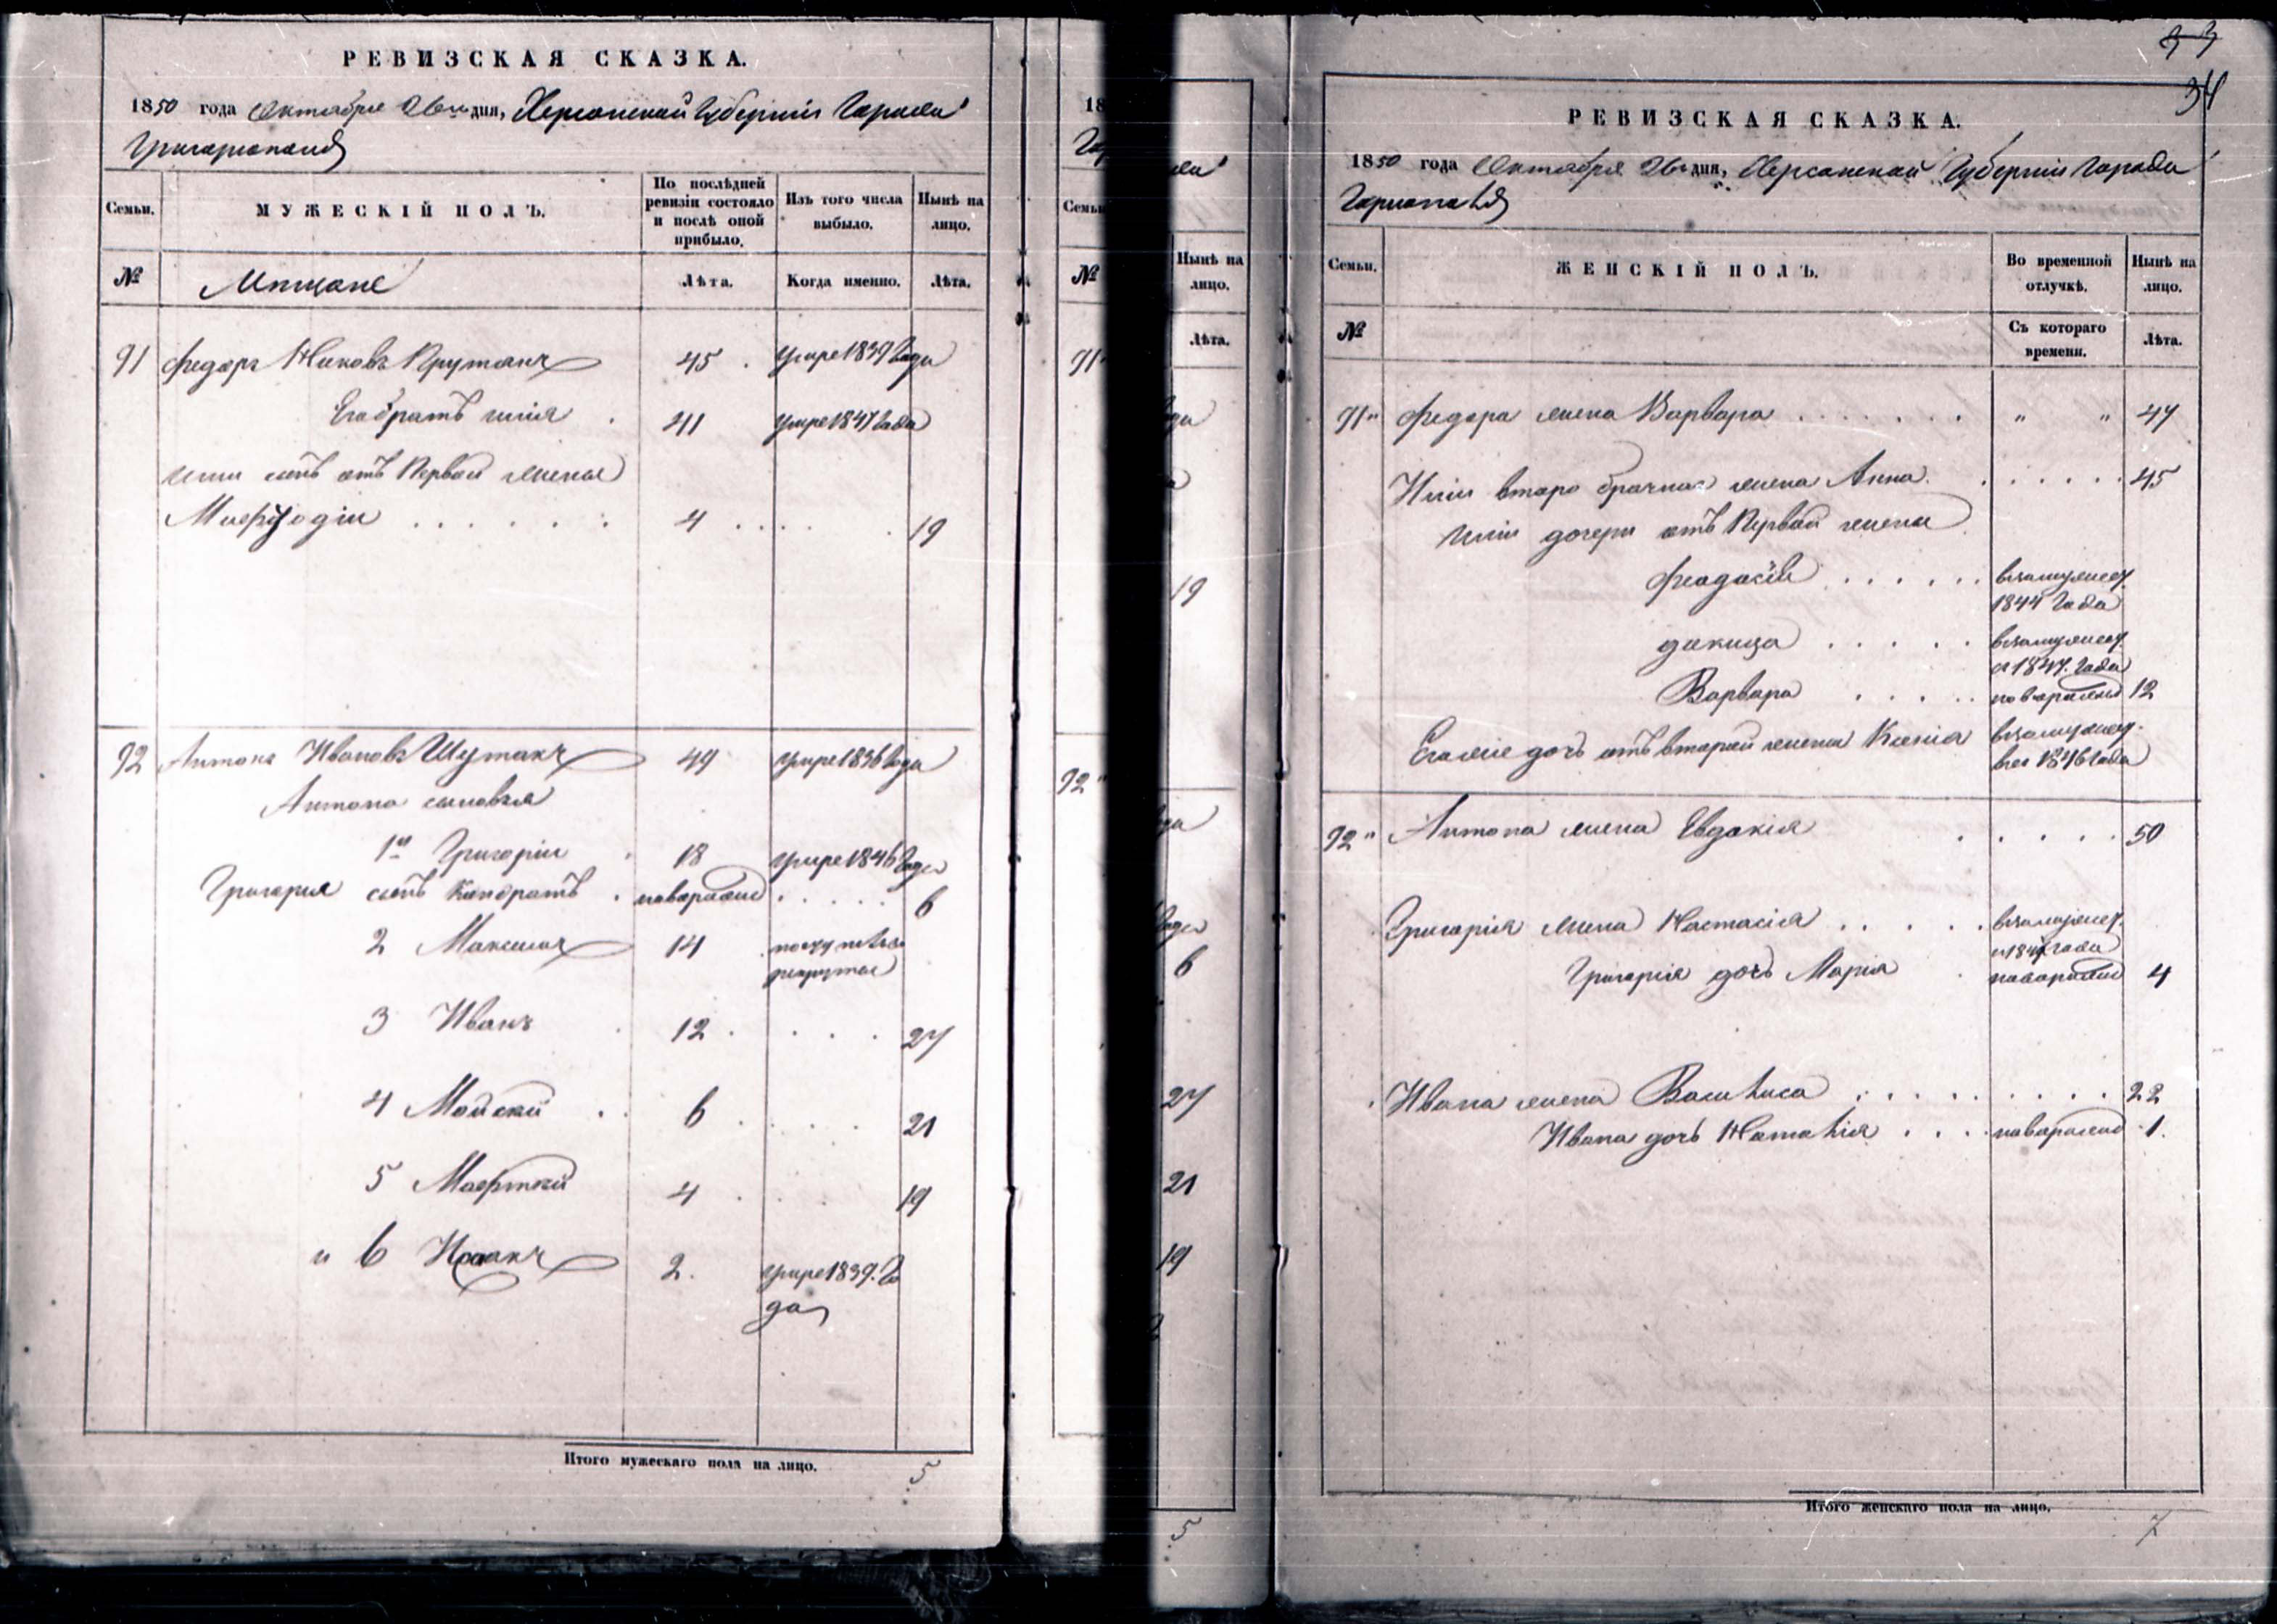 РЕВИЗСКАЯ СКАЗКА.
1850 года Октября 26го дня, Херсонской Губерніи Города
Григориополя
Семьи.
МУЖЕСКІЙ ПОЛЪ.
По послѣдней ревизіи состояло и послѣ оной прибыло.
Изъ того числа выбыло.
Нынѣ на лицо.
№
Мещане
Лѣта.
Когда именно.
Лѣта.
91 Федоръ Ивановъ Прутянъ 45 умре 1839 Года
Его братъ илія 41 умре 1847 Года
илии сынъ отъ Первой жены
Мифодіи 4 19
92 Антонъ Ивановъ Шутакъ 49 умре 1836 Года
Антона сыновья
1й Григоріи 18 умре 1846 Года
Григория сынъ Кондратъ новорожд 6
2 Максимъ 14
рекруты
3 Иванъ 12 27
4 Мойсей 6 21
5 4 19
и 6 Исаакъ 2. умре 1839. Го
да
Итого мужескаго пола на лицо.
5
18
Семьи
№
91
92
Нынѣ на лицо.
Лѣта.
19
6
27
21
19
5
33
34
РЕВИЗСКАЯ СКАЗКА.
1850 года Октября 26го дня, Херсонской Губерніи Города
Семьи.
ЖЕНСКІЙ ПОЛЪ.
Во временной отлучкѣ.
Нынѣ на лицо.
№
Съ котораго времени.
Лѣта.
91" Федора жена Варвара " " 47
Иліи второ брачная жена Анна 45
иліи дочери отъ Первой жены
Феодосія взамужест.
1844 Года
докица взамужест.
с 1847. Года
Варвара новорожд 12
Его же дочь отъ второй жены Ксенія взамужест.
1846 Года
92" Антона жена Евдокія 50
Григорія жена Настасія взамужест.
Года
Григорія дочь Марія новорожд 4
Ивана жена Василиса 22
Ивана дочь Наталія новорожд 1.
Итого женскаго пола на лицо.
7